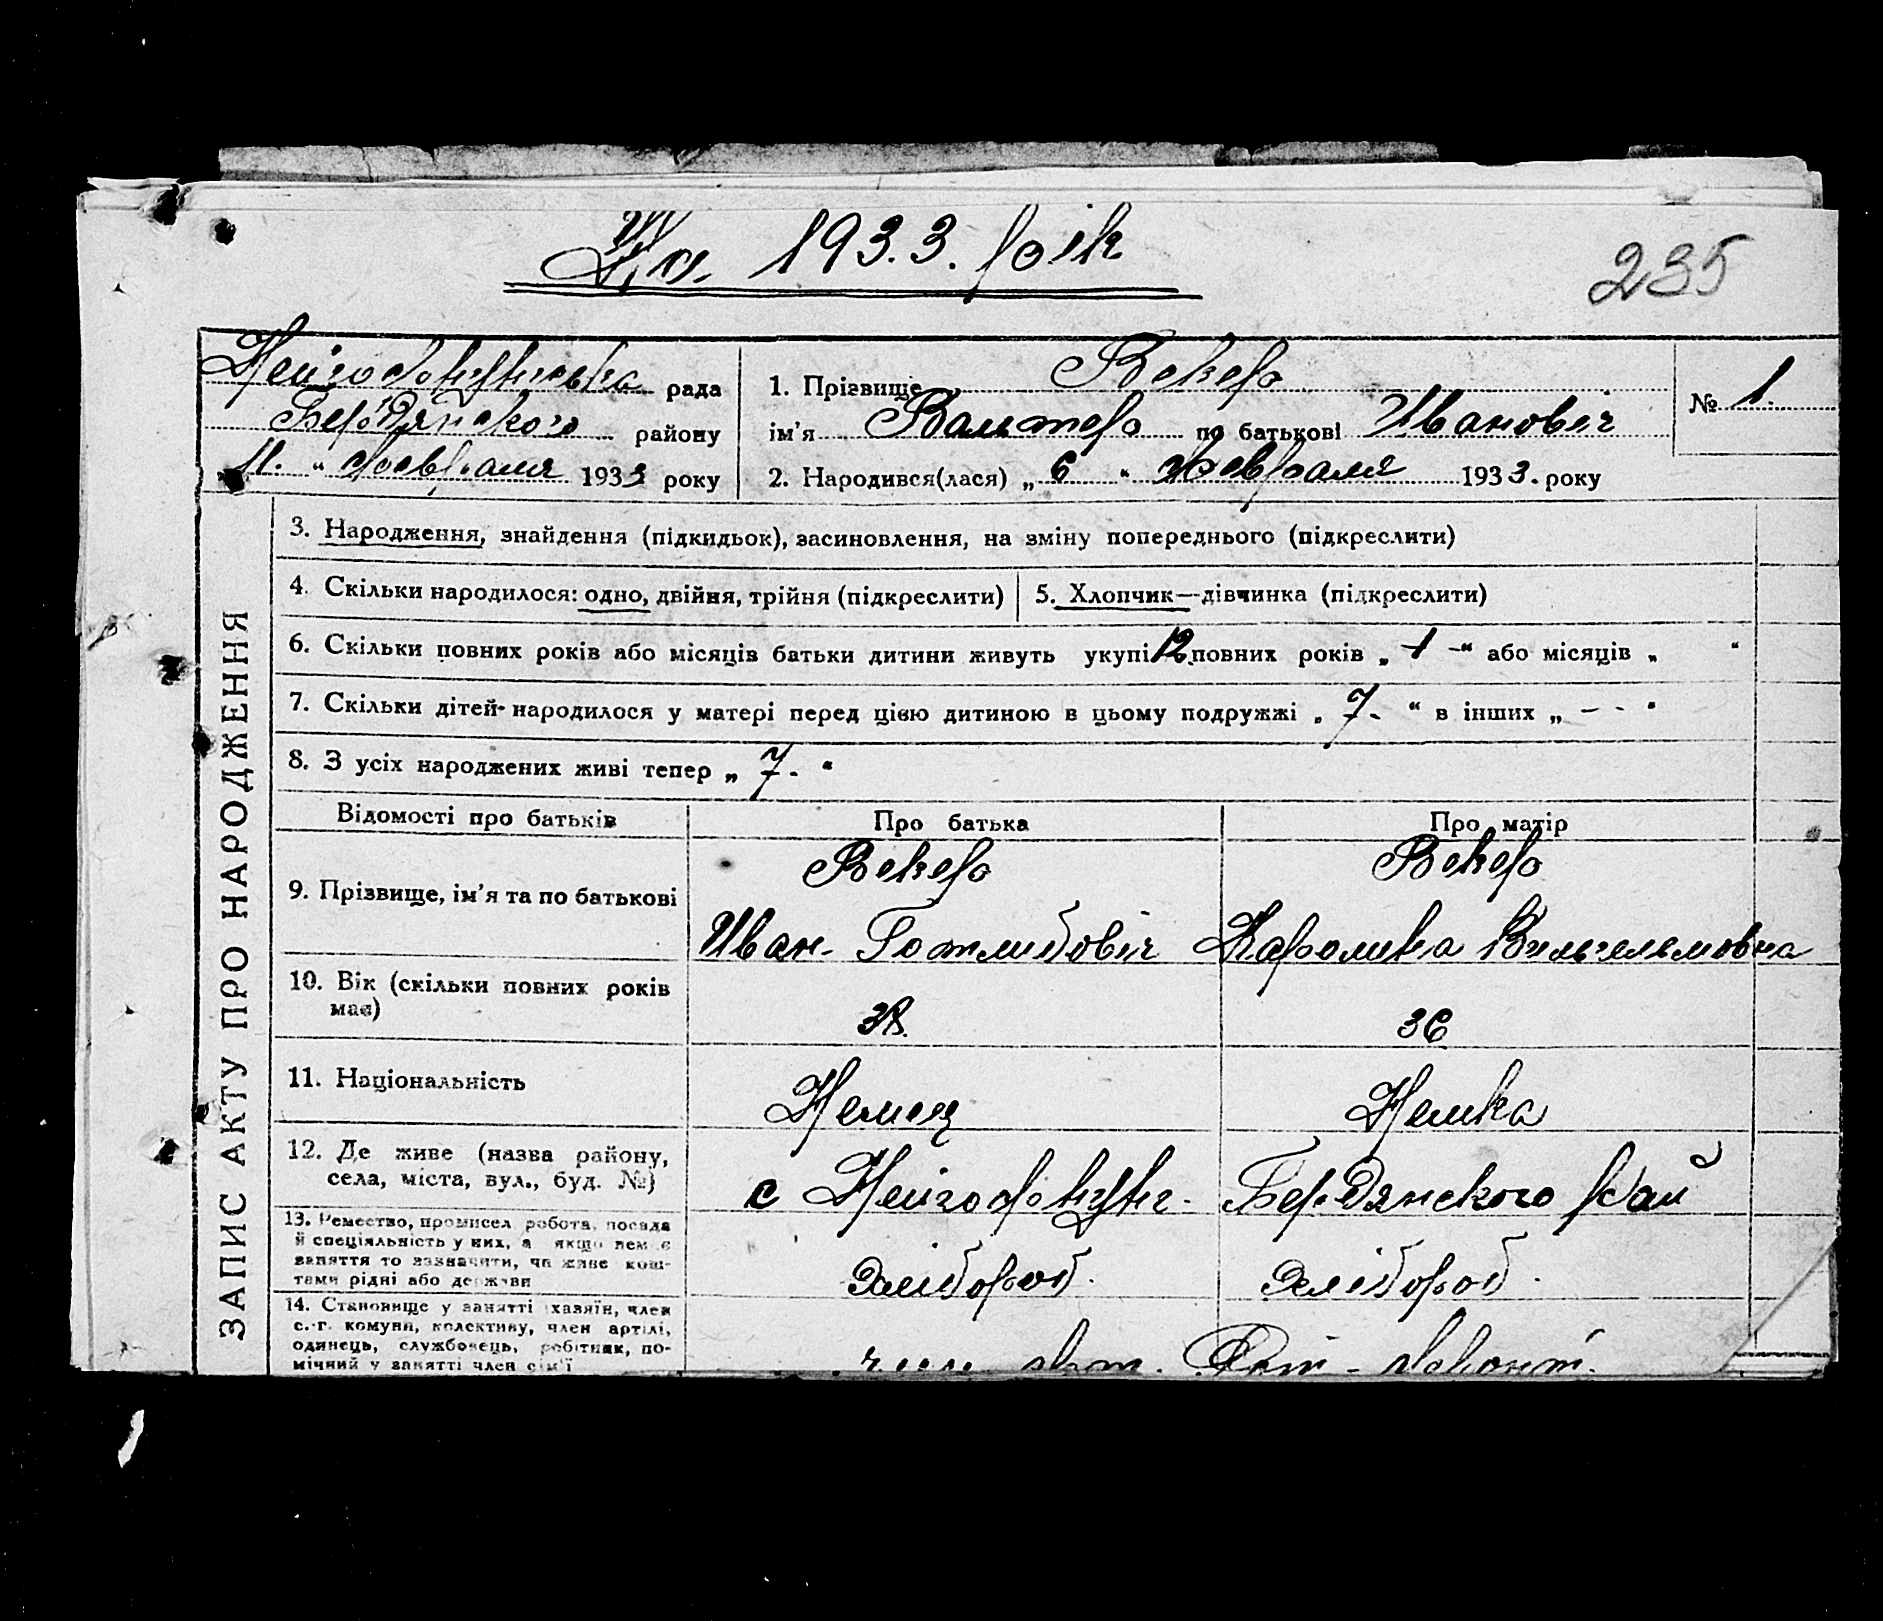 На 1933. рік
235
Нейгофнунгська рада
Бердянского району
11. " февраля 1933 року
1. Прізвище Векер
ім'я Вальтер по батькові Иванович
№ 1.
2. Народився(лася) „ 6 " февраля 1933. року
ЗАПИС АКТУ ПРО НАРОДЖЕННЯ
3. Народження, знайдення (підкидьок), засиновлення, на зміну попереднього (підкреслити)
4. Скільки народилося: одно, двійня, трійня (підкреслити)
5. Хлопчик—дівчинка (підкреслити)
6. Скільки повних років або місяців батьки дитини живуть укупі 12 повних років „ - " або місяців „ "
7. Скільки дітей народилося у матері перед цією дитиною в цьому подружжі „ 7. " в інших „ - - "
8. З усіх народжених живі тепер „ 7. "
Відомості про батьків
Про батька
Про матір
9. Прізвище, ім'я та по батькові
Векер
Иван Готлибовіч
Векер
Каролина Вильгельмовна
10. Вік (скільки повних років має)
38.
36
11. Національність
Немец
Немка
12. Де живе (назва району,
села, міста, вул., буд. №)
с Нейгофнунг. Бердянского рай
13. Ремество, промисел робота, посада
й спеціяльність у них, а якщо нема є
заняття то зазначити, чи живе кош-
тами рідні або держави
хлібороб.
хлібороб.
14. Становище у занятті (хазяїн, член
с.-г. комуни, колективу, член артілі,
одинець, службовець, робітник, по-
мічний у занятті член сім'ї
член